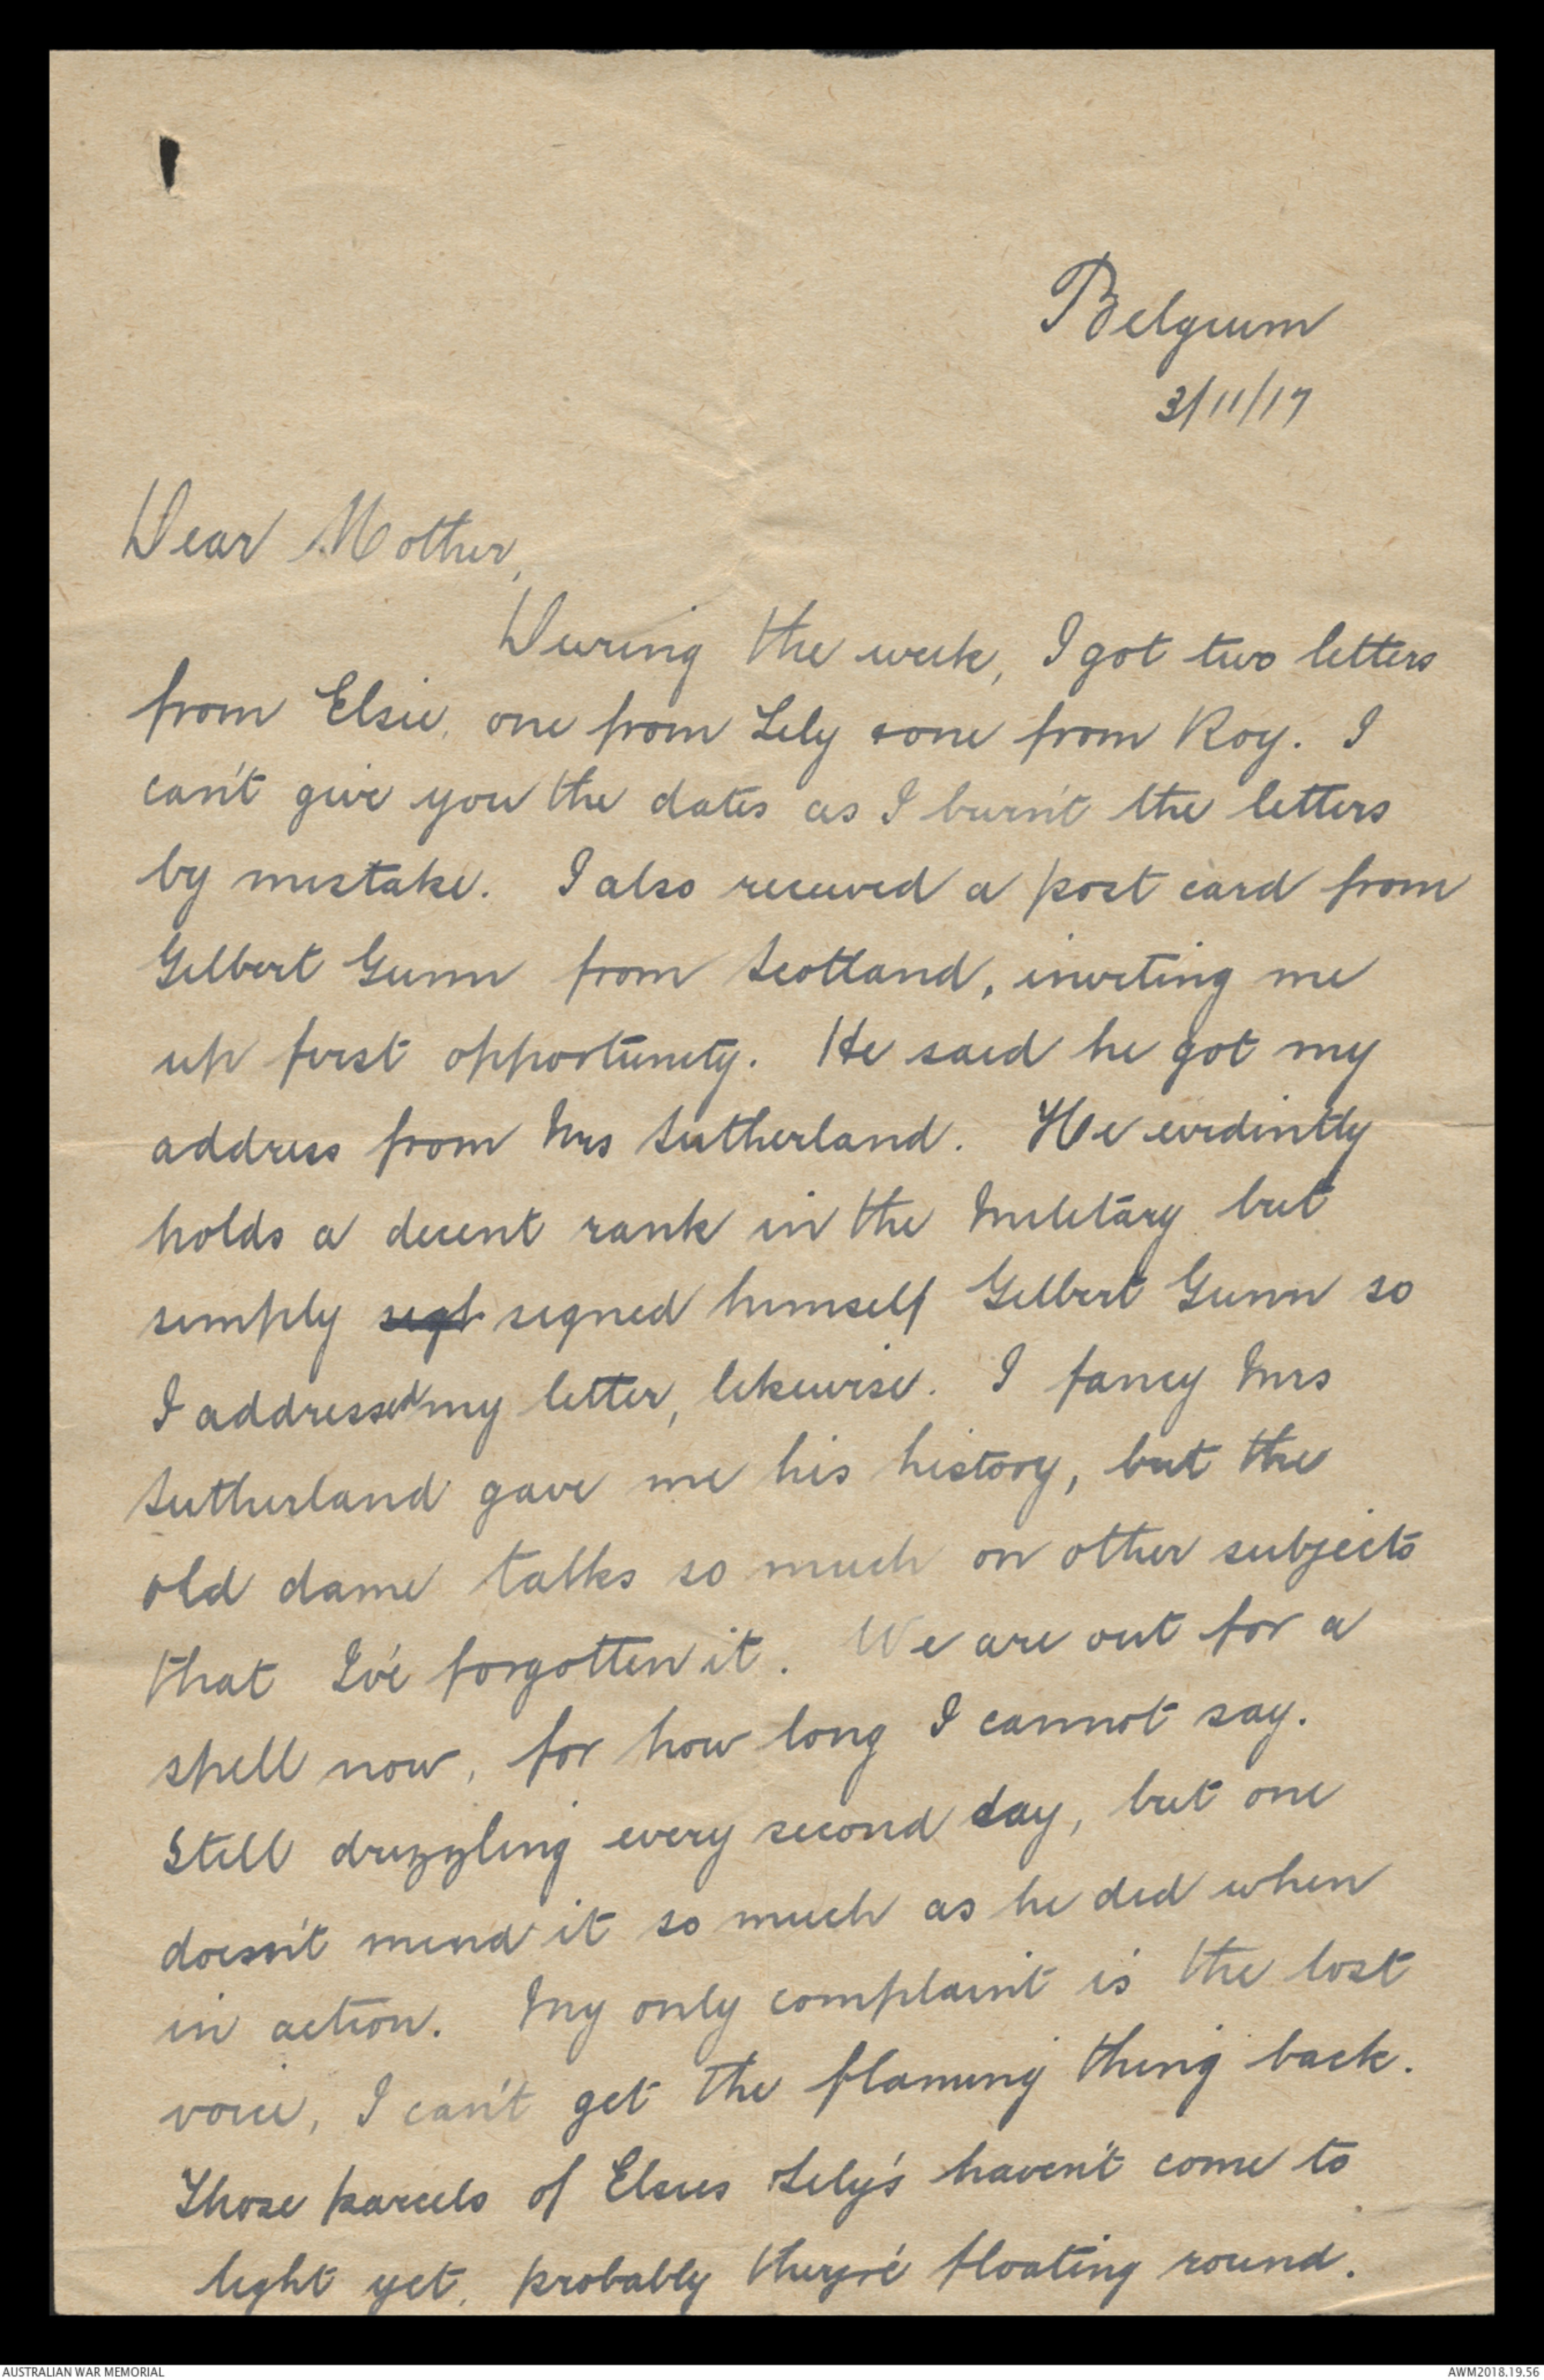 Belgium
3/11/17
Dear Mother,
During the week, I got two letters
from Elsie, one from Lily & one from Roy. I
can't give you the dates as I burn't the letters
by mistake. I also received a post card from
Gilbert Gunn from Scotland, inviting me
up first opportunity. He said he got my
address from Mrs Sutherland. He evidintly
holds a decent rank in the Military but
simply signed himself Gilbert Gunn so
I addressed my letter, likewise. I fancy Mrs
Sutherland gave me his history, but the
old dame talks so much on other subjects
that I've forgotten it. We are out for a
spell now, for how long I cannot say.
Still drizzling every second day, but one
doesn't mind it so much as he did when
in action. My only complaint is the lost
voice, I can't get the flaming thing back.
Those parcels of Elsies Lily's haven't come to
light yet, probably they're floating round.
AUSTRALIAN WAR MEMORIAL
AWM2018.19.56